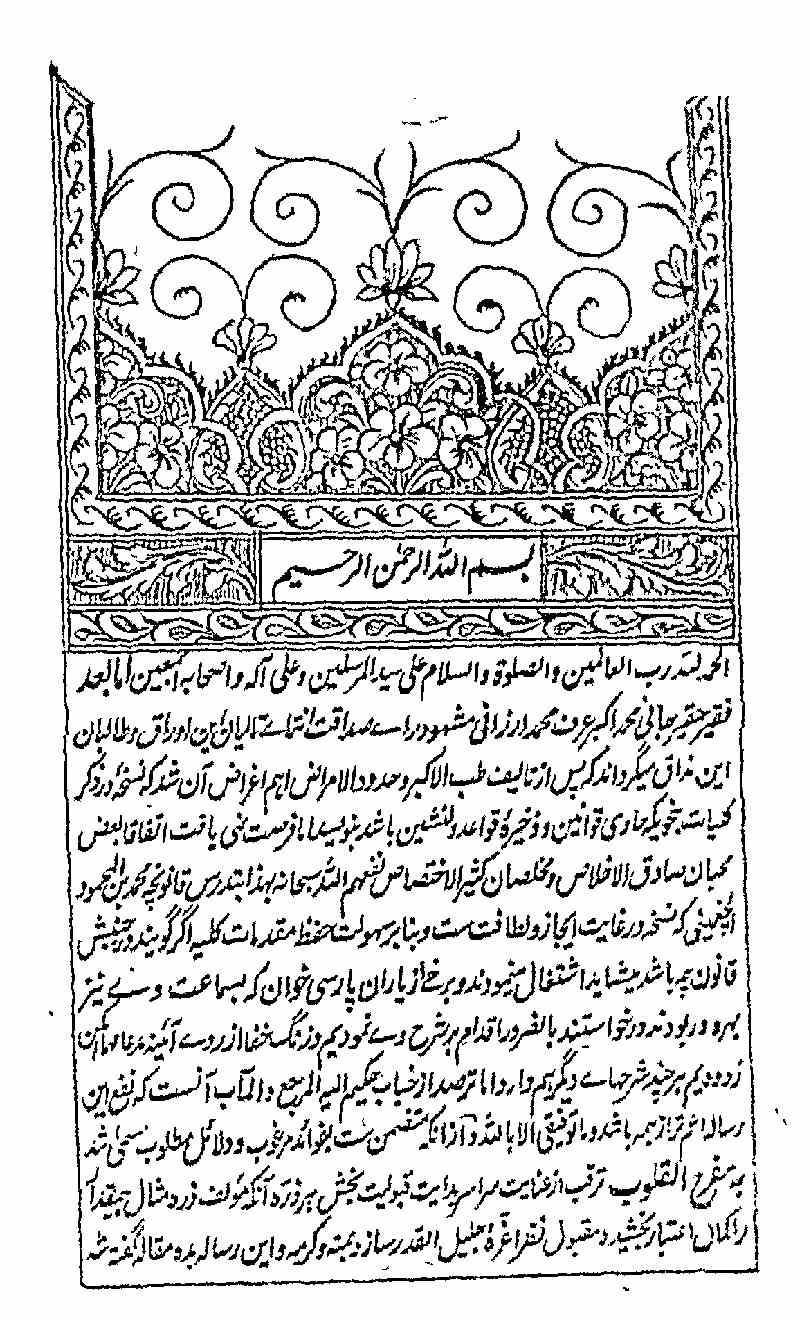 بسم الله الرحمن الرحیم
الحمد لله رب العالمین والصلوة والسلام علی سید المرسلین وعلی آله واصحابه اجمعین اما بعد
فقیر حقیر جانی محمد اکبر عرف محمد ارزانی مشهود رای صداقت انتمای تالیان این اوراق وطالبان
این مذاق میگرداند که پس از تالیف طب الاکبر وحدود الامراض اهم اغراض آن شد که نسخه در ذکر
کلیات بنحویکه حاوی قوانین و ذخیره قواعد دلنشین باشد بنویسد اما فرصت نمی یافت اتفاقا بعض
محبان صادق الاخلاص ومخلصان کثیر الاختصاص نفعهم الله سبحانه بهذا بتدرس قانونچه محمد بن المحمود
الچغمینی که نسخه در غایت ایجاز ولطافت ست وبنابر سهولت حفظ مقدمات کلیه اگر گویند در جنبش
قانون چه باشد میشاید اشتغال مینمودند وبرخے از یاران پارسی خوان که بسماعت وے نیز
بهره ور بودند درخواستند بالضرور اقدام بر شرح وے نمودیم وزنگ خفا از روے آئینه مدعاهاے آن
زدودیم هر چند شرحهاے دیگر هم دارد اما ترصد از جناب حکیم الیه المرجع والمآب آنست که نفع این
رساله اعم تر از همه باشد وما توفیقی الا بالله و از آنکه متضمن ست بفوائد مرغوب ودلائل مطلوب مسمی شد
به مفرح القلوب ترقب از عنایت سراسر هدایت قبولیت بخش هر ذره آنکه مؤلف زرد مثال بیقدر
را کمال اعتبار بخشیده مقبول نظر اعزه جلیل القدر سازد بمنه وکرمه واین رساله بده مقاله گفته شد